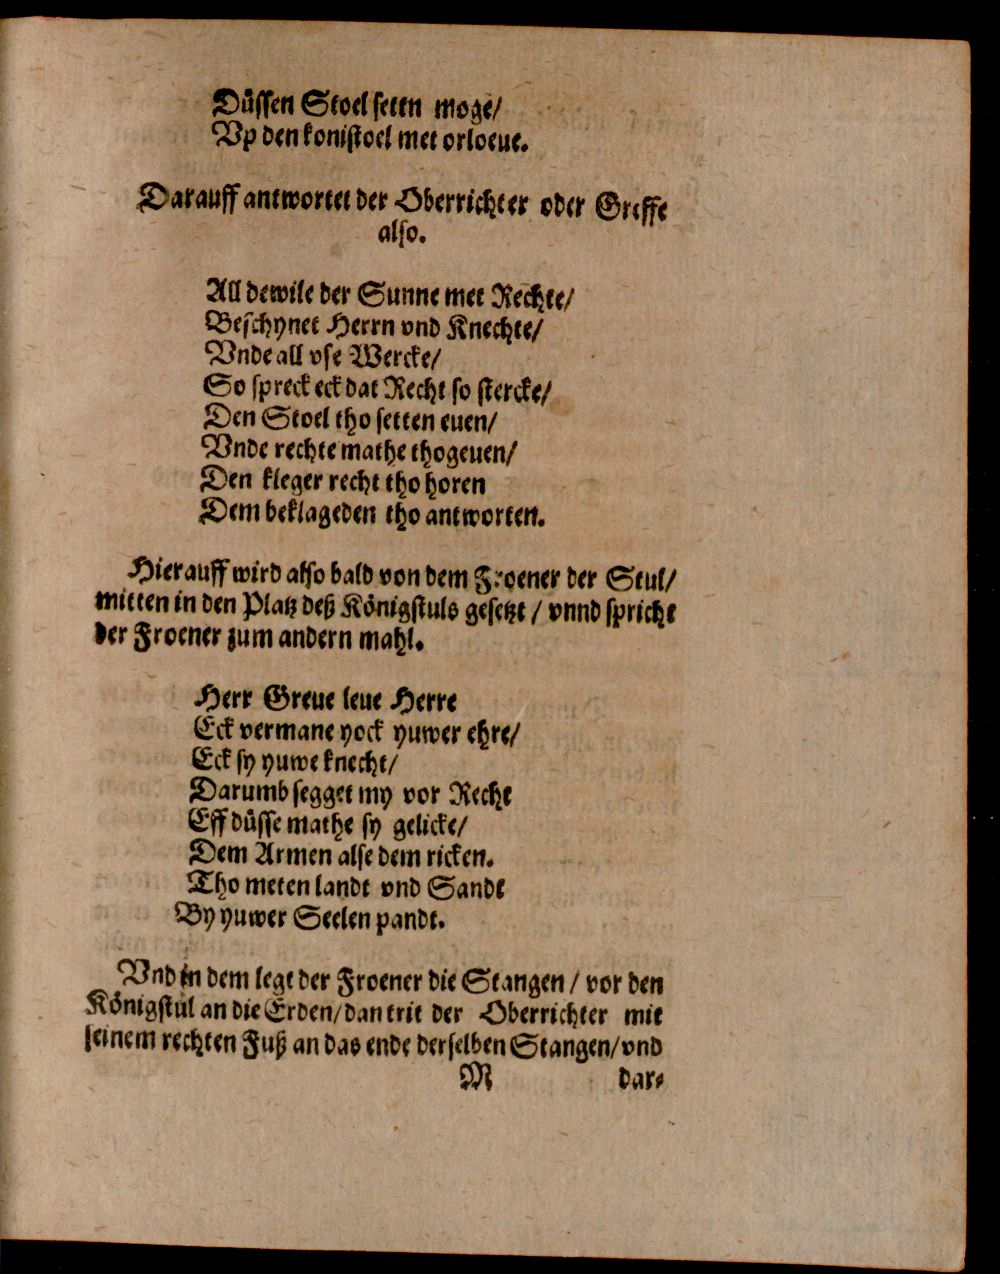 Důssen Stoel settn moge/
Vp den konistoel met orloeue.
Darauff antwortet der Oberrichter oder Greffe
also.
All dewile der Sunne met Rechte/
Beschynet Herrn vnd Knechte/
Vnde all vse Wercke/
So spreck eck dat Recht so stercke/
Den Stoel tho setten euen/
Vnde rechte mathe thogeuen/
Den kleger recht tho horen
Dem beklageden tho antworten.
Hierauff wird also bald von dem Froener der Stul/
mitten in den Platz deß Königstuls gesetzt / vnnd spricht
der Froener zum andern mahl.
Herr Greue leue Herre
Eck vermane yock yuwer ehre/
Eck sy yuwe knecht/
Darumb segget my vor Recht
Eff důsse mathe sy gelicke/
Dem Armen alse dem ricken.
Tho meten landt vnd Sandt
By yuwer Seelen pandt.
Vnd in dem legt der Froener die Stangen / vor den
Königstul an die Erden/ dan trit der Oberrichter mit
seinem rechten Fuß an das ende derselben Stangen/ vnd
M dar-